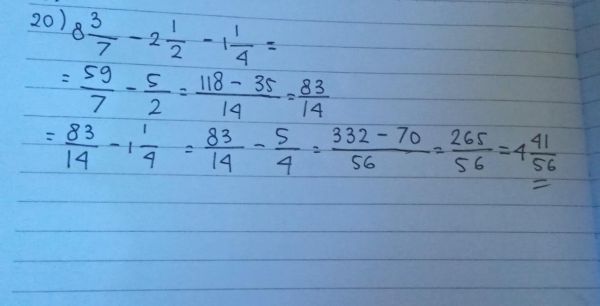 20) 8 3/7 - 2 1/2 - 1 1/4 =
= 59/7 - 5/2 = 118 - 35/14 = 83/14
= 83/14 - 1 1/4 = 83/14 - 5/4 = 332 - 70/56 = 265/56 = 4 41/56